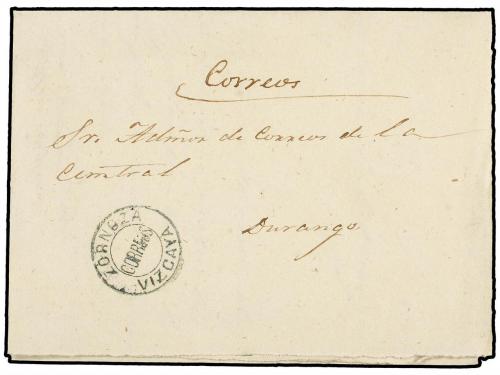 Correos
Sr. Admor de Correos de la
Cemtral
Durango.
ZORNOZA
CORREOS
VIZCAYA